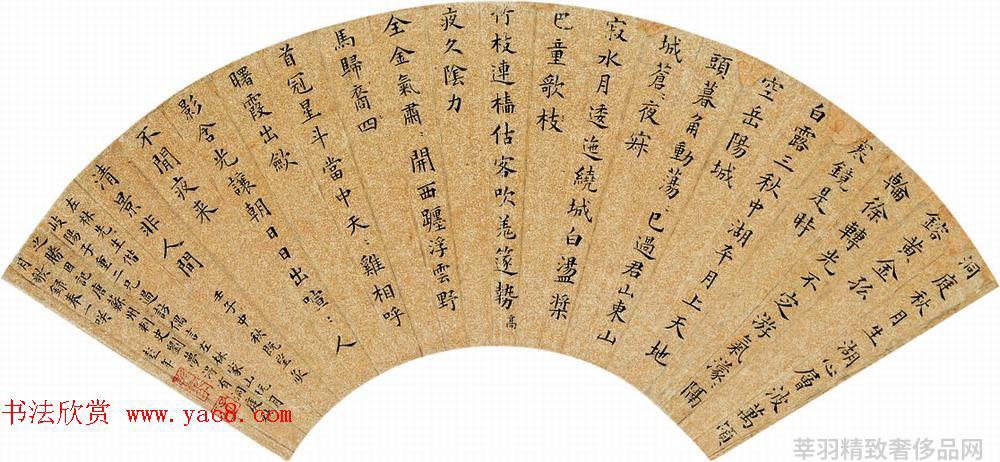 洞庭秋月生湖心層波萬頃
鎔黃金孤
輪徐轉光不定游氣濛隔
寒鏡是時
白露三秋中湖平月上天地
空岳陽城
頭暮角動蕩:已過君山東山
城蒼:夜寂
寂水月逶迤繞城白盪槳
巴童歌枝
竹枝連檣估客吹羌篴勢高
夜久陰力
全金氣肅:開西躔浮雲野
馬歸裔四
首冠星斗當中天:雞相呼
曙霞出斂
影含光讓朝日日出喧:人
不閒夜来
清景非人間
壬子中秋既望
左林先生偕
书法欣赏 www.yac8.com
莘羽精致奢侈品网